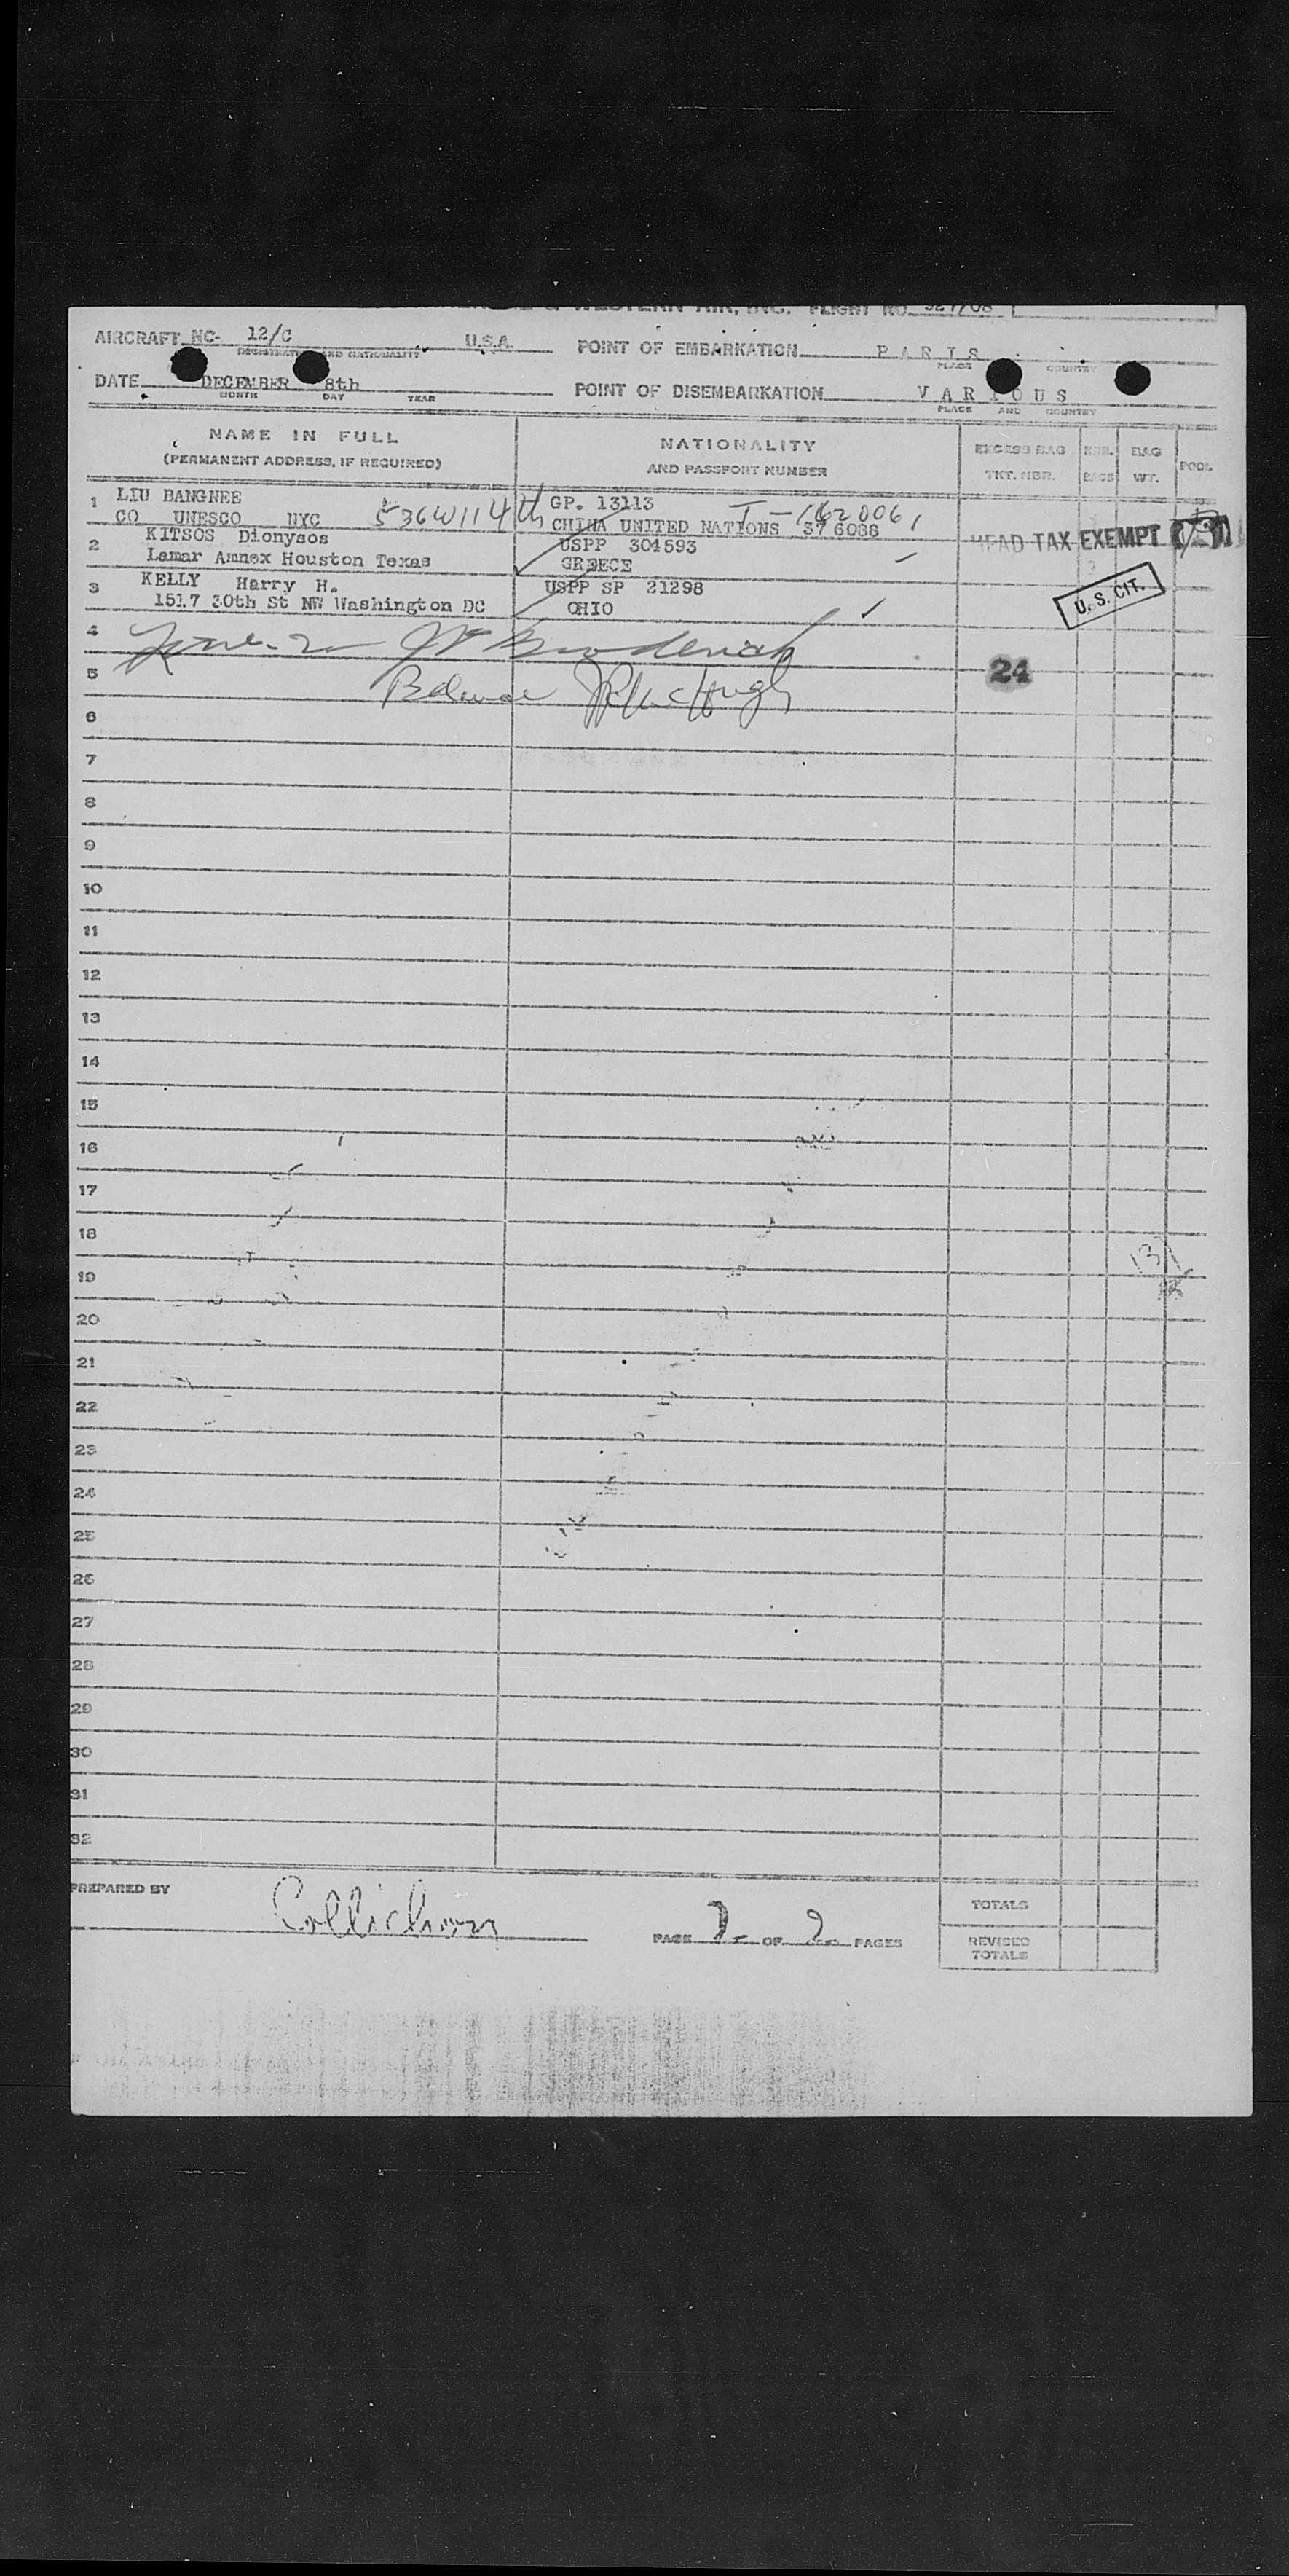 & WESTERN AIR, INC. FLIGHT NO. 927/08
AIRCRAFT NC- 12/C U.S.A. POINT OF EMBARKATION PARIS
REGISTRATION AND NATIONALITY PLACE COUNTRY
DATE DECEMBER 8th POINT OF DISEMBARKATION VARIOUS
MONTH DAY YEAR PLACE AND COUNTRY
NAME IN FULL NATIONALITY EXCESS BAG NBR. BAG POOL
(PERMANENT ADDRESS, IF REQUIRED) AND PASSPORT NUMBER TKT. NBR. BAGS WT.
1 LIU BANGNEE GP. 13113
CO UNESCO NYC 536W114th CHINA UNITED NATIONS 376088 I-1620061
HEAD TAX EXEMPT
2 KITSOS Dionysos USPP 304593
Lamar Annex Houston Texas GREECE
3 KELLY Harry H. USPP SP 21298 U.S. CIT.
1517 30th St NW Washington DC OHIO
4
5 24
6
7
8
9
10
11
12
13
14
15
16
17
18
19
20
21
22
23
24
25
26
27
28
29
30
31
32
PREPARED BY TOTALS
PAGE 2 OF 2 PAGES REVISED
TOTALS